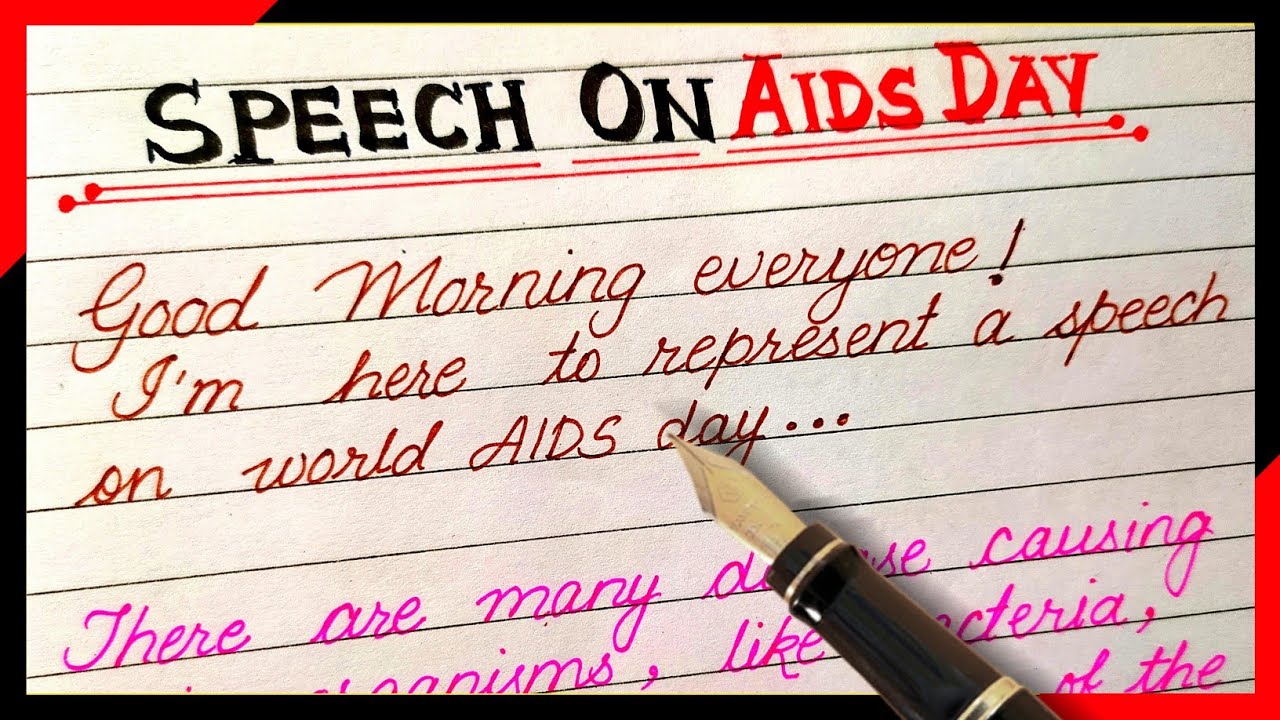 SPEECH ON AIDS DAY
Good Morning everyone!
I'm here to represent a speech
on world AIDS day...
There are many causing
organisms, like
of the